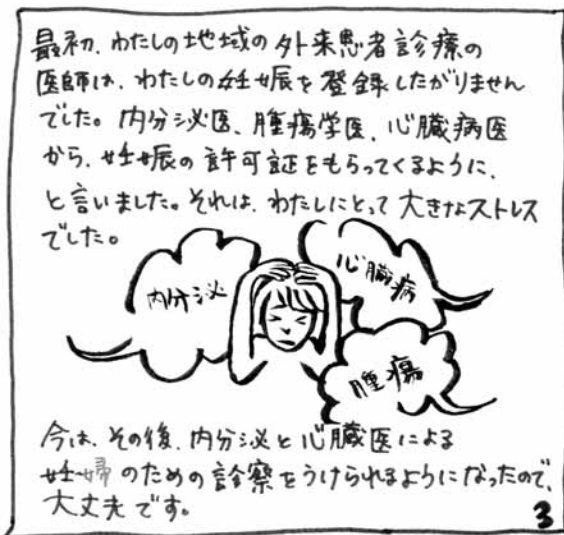 最初、わたしの地域の外来患者診療の
医師は、わたしの妊娠を登録したがりません
でした。内分泌医、腫瘍学医、心臓病医
から、妊娠の許可証をもらってくるように、
と言いました。それは、わたしにとって大きなストレス
でした。
内分泌
心臓病
腫瘍
今は、その後、内分泌と心臓医による
妊婦のための診察をうけられるようになったので、
大丈夫です。
3